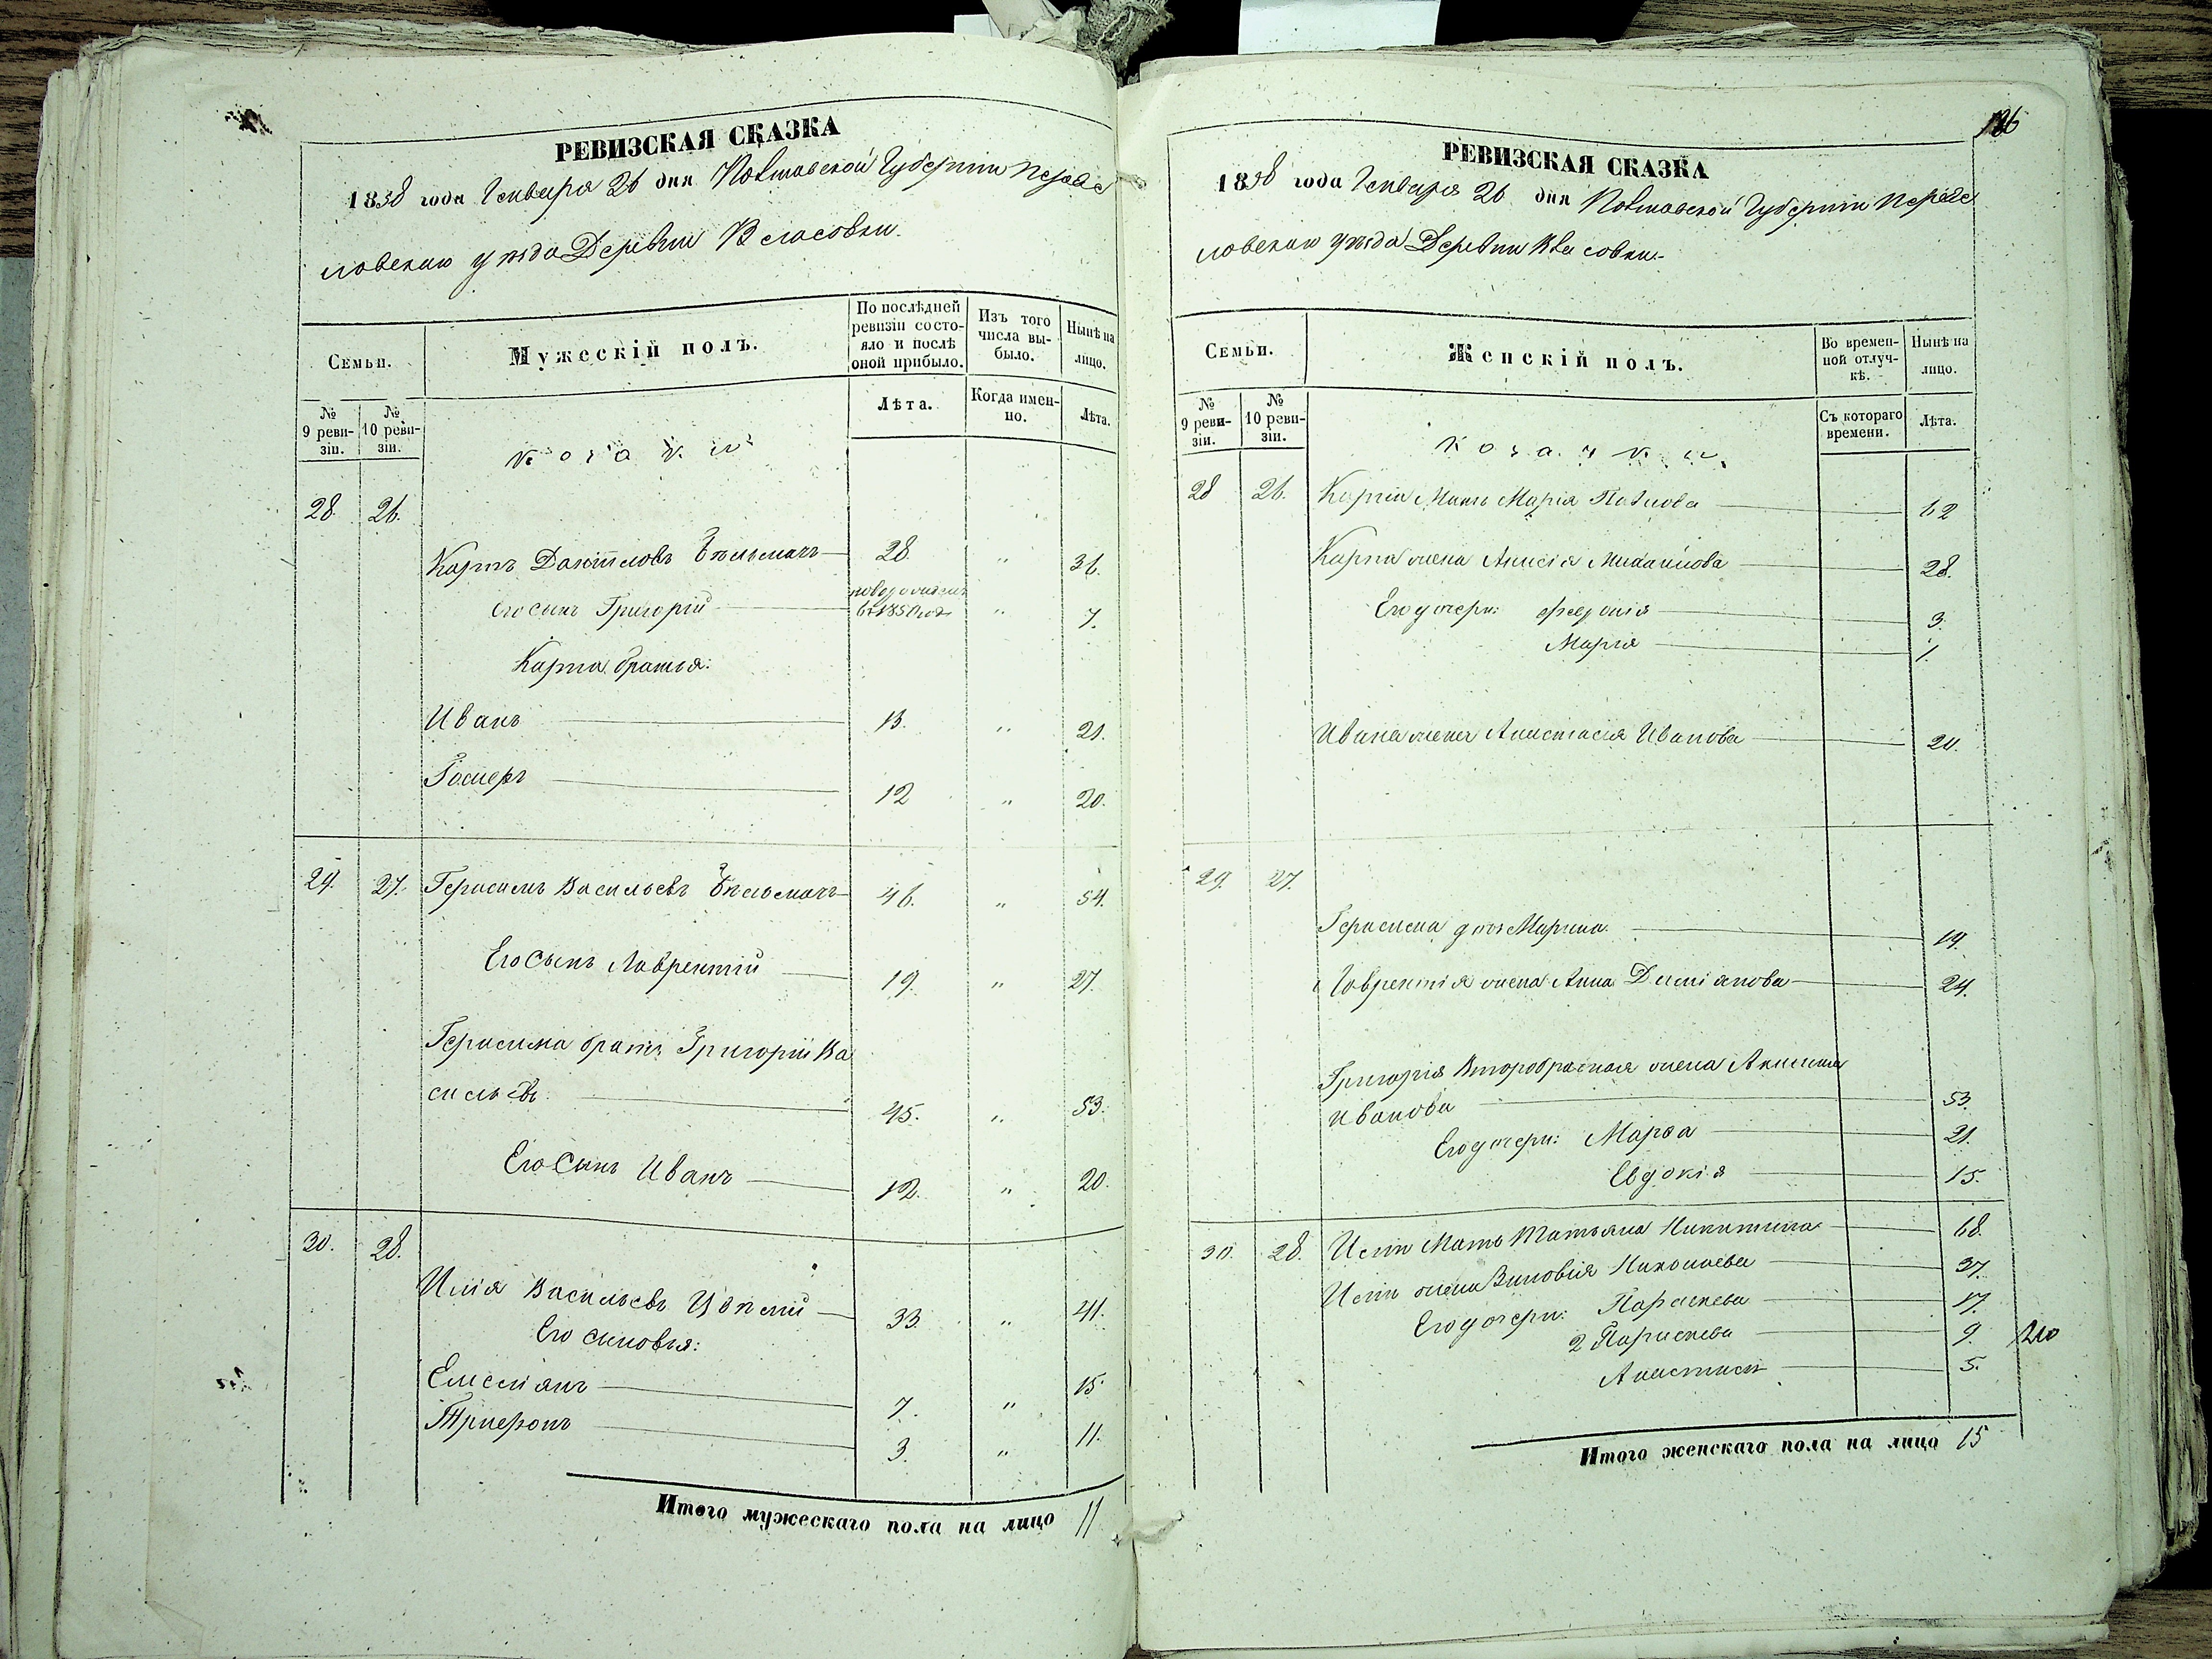 РЕВИЗСКАЯ СКАЗКА
1858 года Генваря 26 дня Полтавской Губернии Переяс
ловскаго уезда Деревни Власовки.
Семьи.
Мужескій полъ.
По послѣдней
ревизіи состо-
яло и послѣ
оной прибыло.
Изъ того
числа вы-
было.
Нынѣ на
лицо.
№
9 реви-
зіи.
№
10 реви-
зіи.
козаки
Лѣта.
Когда имен-
но.
Лѣта.
28. 26.
Карпъ Даніиловъ 28 " 36.
его сынъ Григорій в 1850 годъ " 7.
Карпа братья:
Иванъ 13. " 21.
12 " 20.
29. 27. Герасимъ Васильевъ 46. " 54.
Его Сынъ Лаврентій 19. " 27.
Герасима братъ Григорій Ва
сильевъ. 45. " 53.
Его Сынъ Иванъ 12. " 20.
30. 28.
Илія Васильевъ 33. " 41.
Его сыновья:
Емеліянъ 7. " 15.
Трифонъ 3. " 11.
Итого мужескаго пола на лицо 11
136
РЕВИЗСКАЯ СКАЗКА
1858 года Генваря 26 дня Полтавской Губернии Переяс
ловскаго уезда Деревни Власовки.
Семьи.
Женскій полъ.
Во времен-
ной отлуч-
кѣ.
Нынѣ на
лицо.
№
9 реви-
зіи.
№
10 реви-
зіи.
козачки.
Съ котораго
времени.
Лѣта.
28 26. Карпа Мать Марія Павлова 62
Карпа жена Анисія Михайлова 28.
Его дочери: Февронія 3.
Марія 1.
Ивана жена Анастасія Иванова 20.
29. 27.
Герасима дочь Марина 19.
Лаврентія жена Анна Даміанова 24.
Григорія Второбрачная жена
Иванова 53.
Его дочери: Марфа 21.
Евдокія 15.
30. 28. Иліи Мать Татьяна Никитина 68.
Иліи жена Зиновія Николаева 37.
Его дочери: Параскева 17.
2 Параскева 9.
Анастасія 5.
Итого женскаго пола на лицо 15